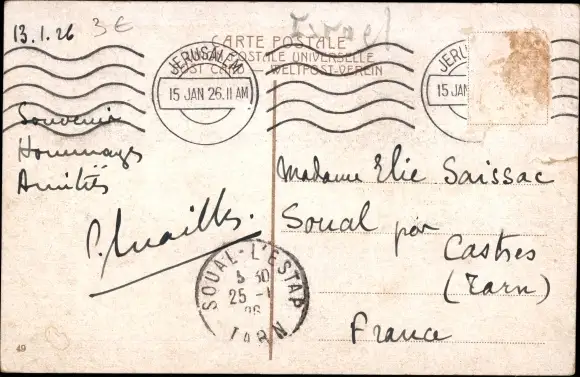 13.1.26
3€
Israel
CARTE POSTALE
POSTALE UNIVERSELLE
POST CARD — WELTPOST-VEREIN
JERUSALEM
15 JAN 26.11 AM
JERU
15 JAN
Souvenir
Hommages
Amitiés
Madame Elie Saissac
Soual par
Castres
(Tarn)
France
SOUAL-L'ESTAP
25 -1
26
TARN
49